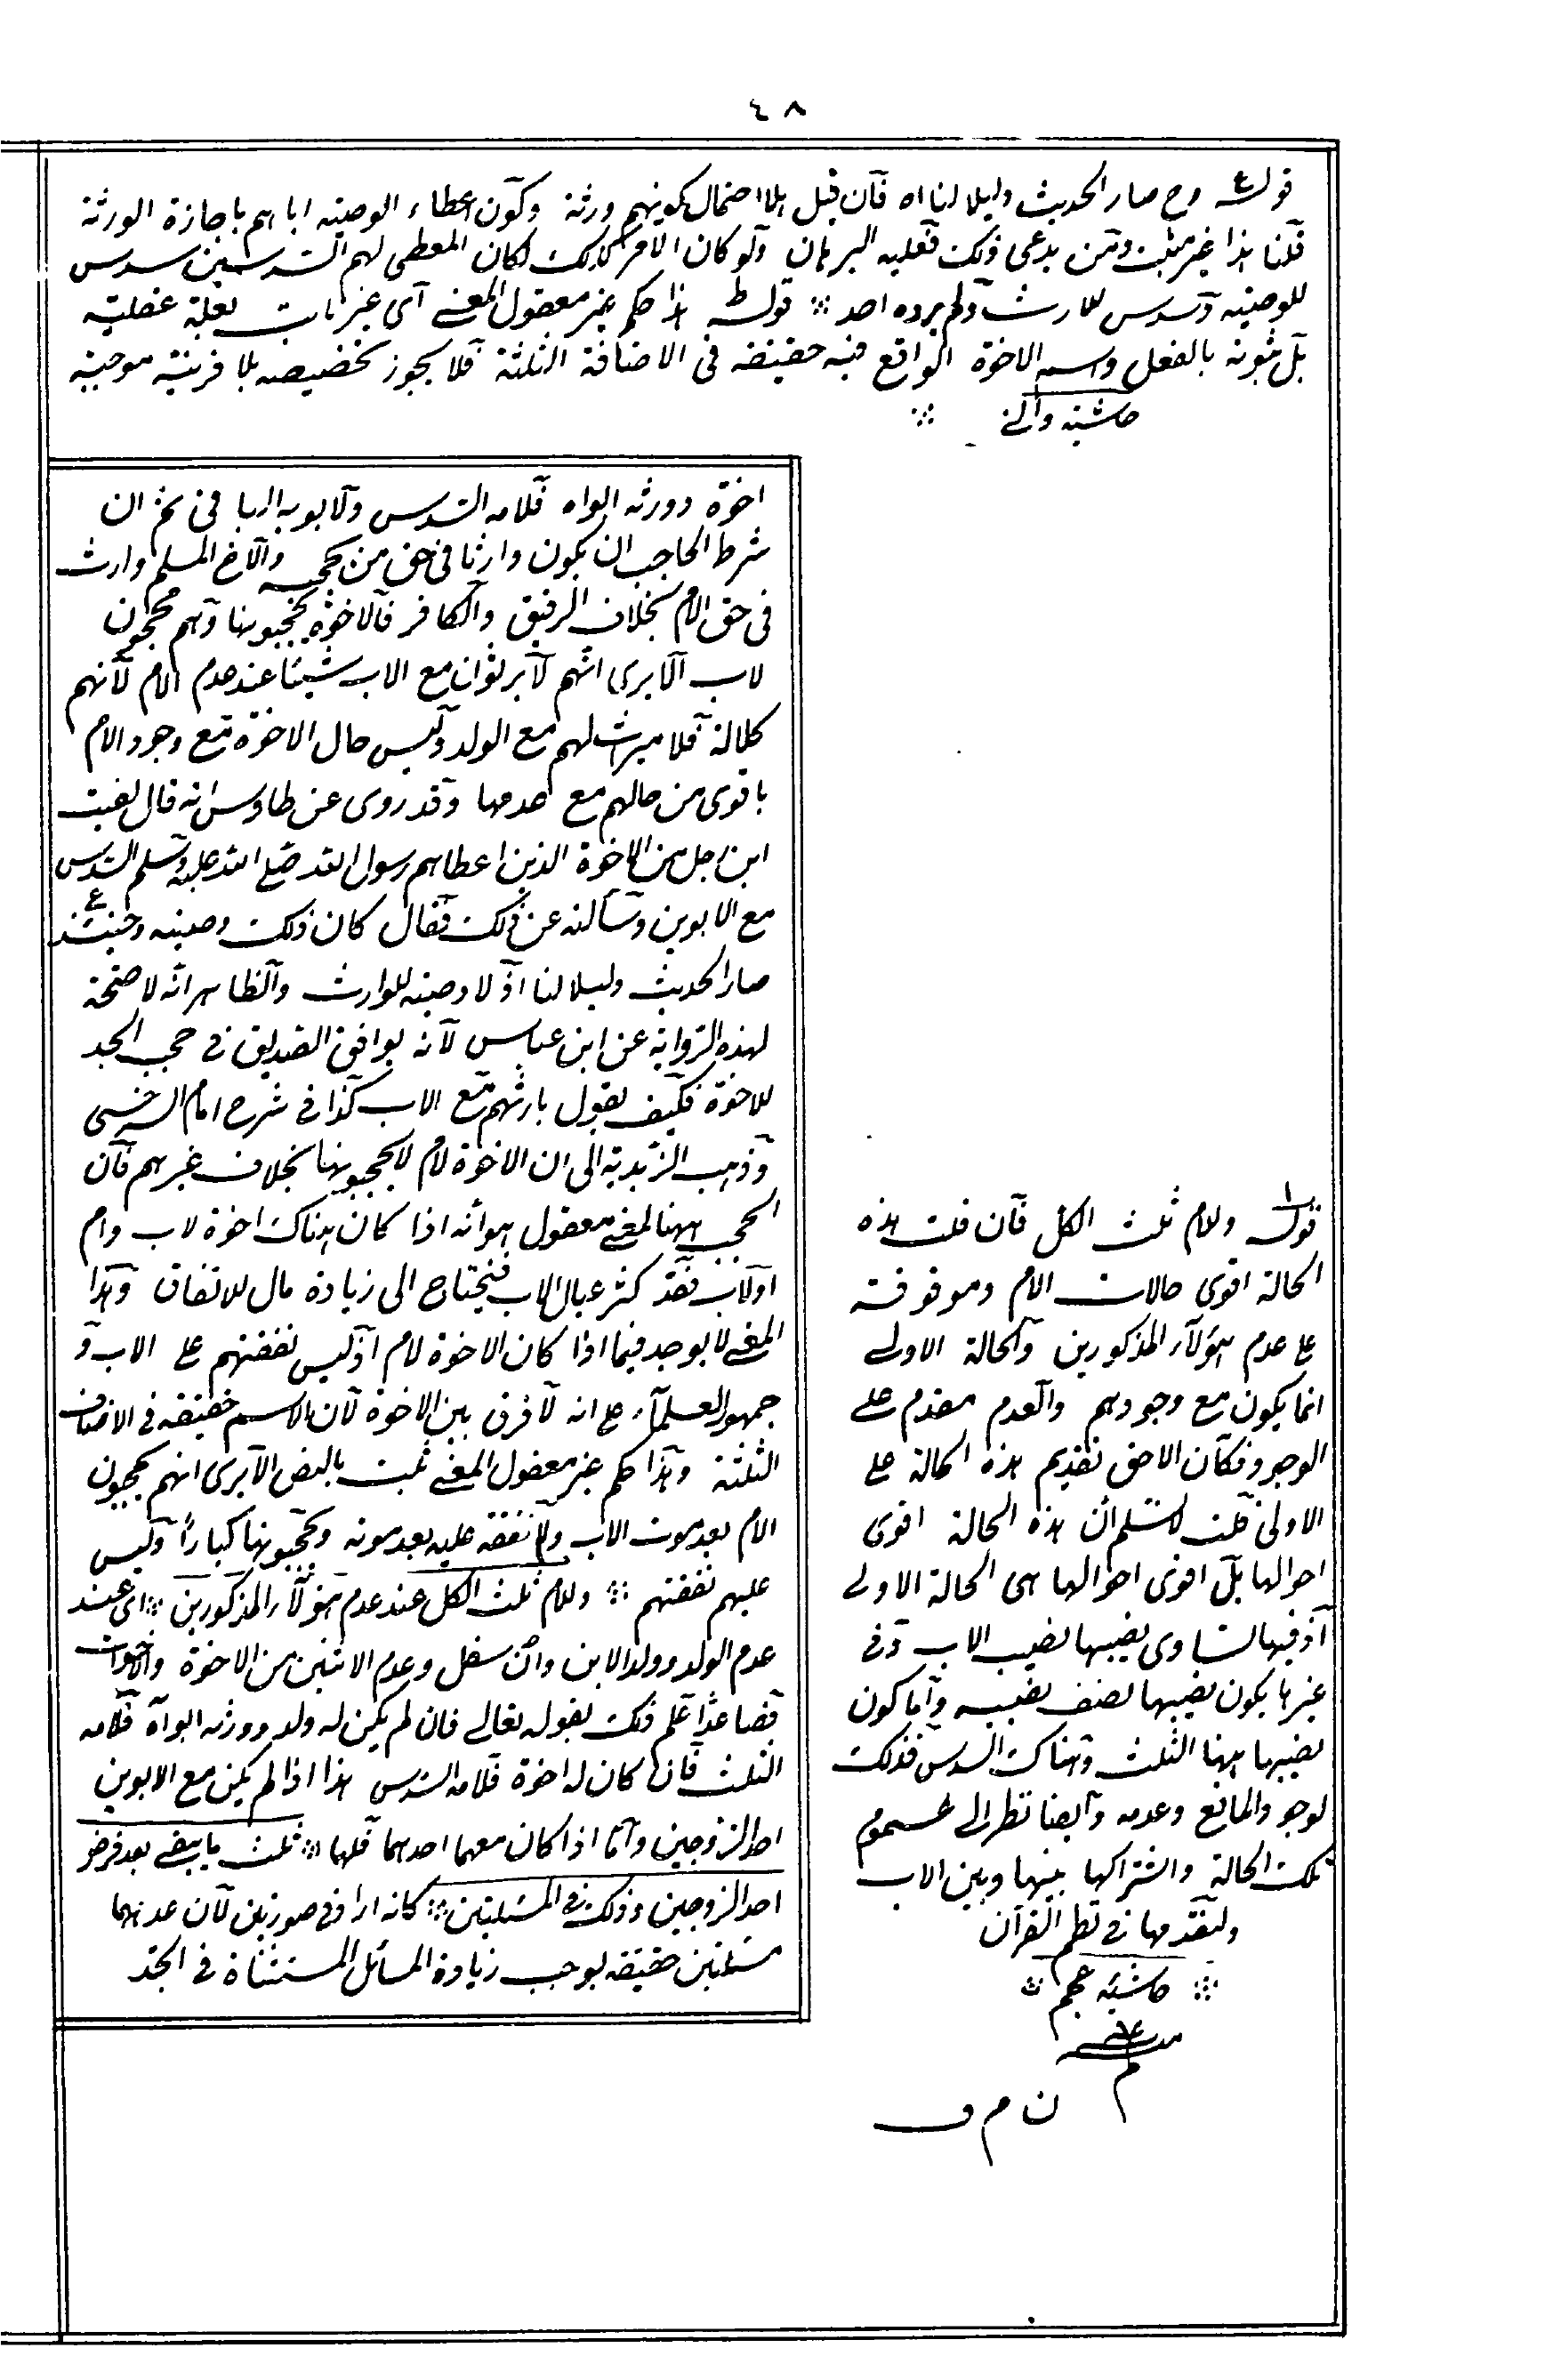 ٤٨
قوله وح صار الحديث دليلا لنا اه فان قيل هلا احتمال كونهم ورثة وكون اعطاء الوصية اياهم باجازة الورثة
قلنا هذا غير مثبت ومن يدعى ذلك فعليه البرهان ولو كان الامر كذلك لكان المعطى لهم السدسين سدس
للوصية وسدس للارث ولم يرده احد قوله هذا حكم غير معقول المعنى اى غير ثابت بعلة عقلية
بل ثبوته بالفعل واسم الاخوة الواقع فيه حقيقة فى الاضافة الثلثة فلا يجوز تخصيصه بلا قرينة موجبة
حاشيه وانى
اخوة وورثه ابواه فلامه السدس ولابويه الباقى ثم ان
شرط الحاجب ان يكون وارثا فى حق من يحجبه والاخ المسلم وارث
فى حق الام بخلاف الرقيق والكافر فالاخوة يحجبونها وهم محجوبون
لاب الا يرى انهم لا يرثون مع الاب شيئا عند عدم الام لانهم
كلالة فلا ميراث لهم مع الولد وليس حال الاخوة مع وجود الام
باقوى من حالهم مع عدمها وقد روى عن طاوس انه قال لقيت
ابن رجل من الاخوة الذين اعطاهم رسول الله صلى الله عليه وسلم السدس
مع الابوين وسألته عن ذلك فقال كان ذلك وصية وحينئذ
صار الحديث دليلا لنا اذ لا وصية للوارث والظاهر انه لا صحة
لهذه الرواية عن ابن عباس لانه يوافق الصديق فى حجب الجد
للاخوة فكيف يقول بارثهم مع الاب كذا فى شرح امام السرخسى
وذهب الزيدية الى ان الاخوة لام لا يحجبونها بخلاف غيرهم فان
الحجب ههنا لمعنى معقول هو انه اذا كان هناك اخوة لاب وام
او لاب فقد كثر عيال الاب فيحتاج الى زيادة مال للانفاق وهذا
المعنى لا يوجد فيما اذا كان الاخوة لام اذ ليس نفقتهم على الاب و
جمهور العلماء على انه لا فرق بين الاخوة لان الاسم حقيقة فى الاصناف
الثلثة وهذا حكم غير معقول المعنى ثبت بالنص الا يرى انهم يحجبون
الام بعد موت الاب ولا نفقة عليه بعد موته ويحجبونها كبارا وليس
عليهم نفقتهم وللام ثلث الكل عند عدم هؤلاء المذكورين اى عند
عدم الولد وولد الابن وان سفل وعدم الاثنين من الاخوة والاخوات
فصاعدا علم ذلك بقوله تعالى فان لم يكن له ولد وورثه ابواه فلامه
الثلث فان كان له اخوة فلامه السدس هذا اذا لم يكن مع الابوين
احد الزوجين واما اذا كان معهما احدهما فلها ثلث ما يبقى بعد فرض
احد الزوجين وذلك فى المسئلتين كانه اراد فى صورتين لان عدهما
مسئلتين حقيقة يوجب زيادة المسائل المستثناة فى الجد
قوله وللام ثلث الكل فان قلت هذه
الحالة اقوى حالات الام وموقوفة
على عدم هؤلاء المذكورين والحالة الاولى
انما يكون مع وجودهم والعدم مقدم على
الوجود فكان الاحق تقديم هذه الحالة على
الاولى قلت لا نسلم ان هذه الحالة اقوى
احوالها بل اقوى احوالها هى الحالة الاولى
اذ فيها تساوى نصيبها نصيب الاب وفى
غيرها يكون نصيبها نصف نصيبه واما كون
نصيبها ههنا الثلث وهناك السدس فذلك
لوجود المانع وعدمه وايضا نظر الى عموم
تلك الحالة واشتراكها بينها وبين الاب
ولتقدمها فى نظم القرآن
حاشيه عجم
ن م ف